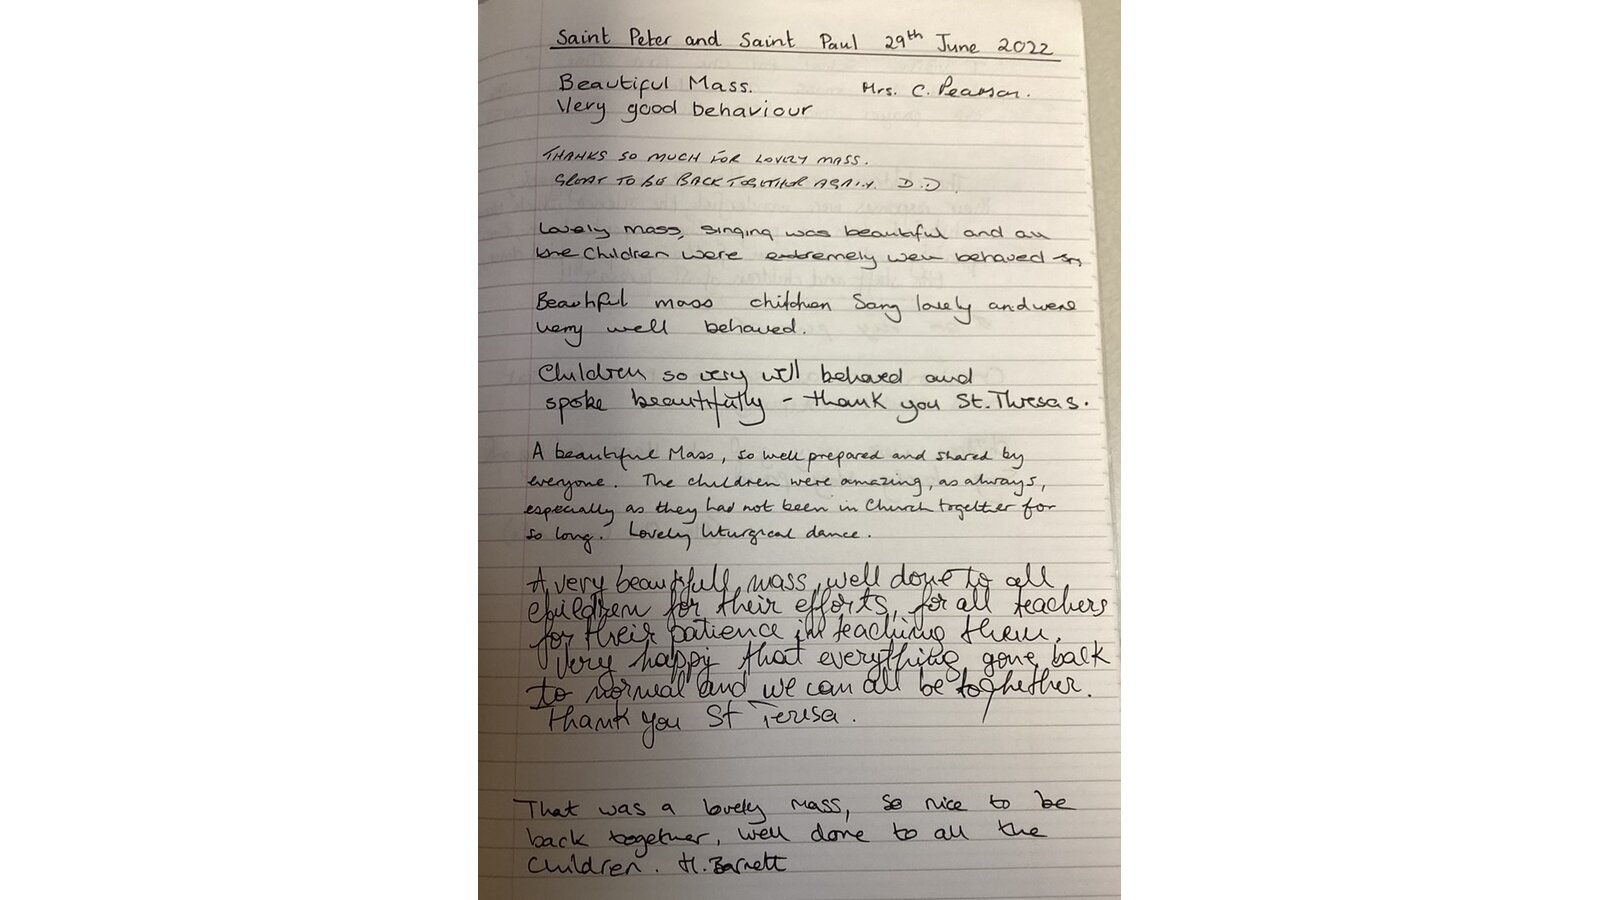 Saint Peter and Saint Paul 29th June 2022
Beautiful Mass. Mrs. C. Pearson.
Very good behaviour
THANKS SO MUCH FOR LOVELY MASS.
GREAT TO BE BACK TOGETHER AGAIN. D.D.
Lovely mass, singing was beautiful and all
the children were extremely well behaved
Beautiful mass children Sang lovely and were
very well behaved.
Children so very well behaved and
spoke beautifully - thank you St. Thresas.
A beautiful Mass, so well prepared and shared by
everyone. The children were amazing, as always,
especially as they had not been in Church together for
so long. Lovely liturgical dance.
A very beautifull mass, well done to all
children for their efforts, for all teachers
for their patience in teaching them.
Very happy that everything gone back
to normal and we can all be toghether.
Thank you St Teresa.
That was a lovely mass, so nice to be
back together, well done to all the
Children. H. Barnett